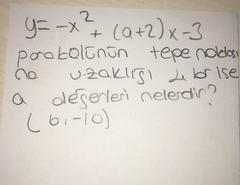 y = -x² + (a+2)x - 3
parabolünün tepe noktası
na uzaklığı 4 br ise
a değerleri nelerdir?
(6, -10)